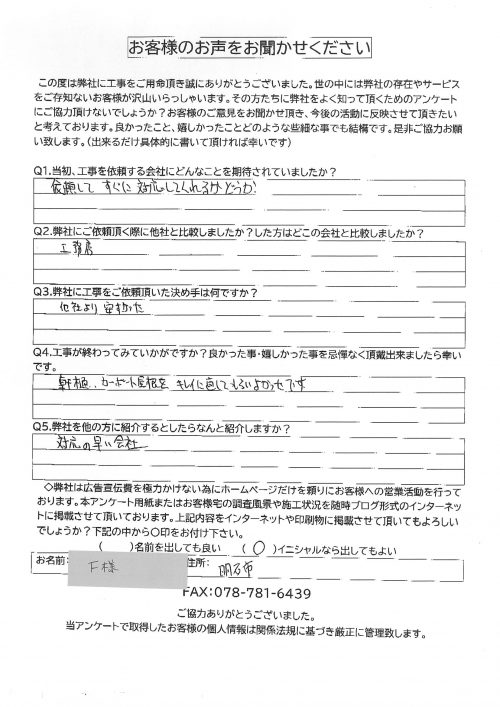 お客様のお声をお聞かせください
この度は弊社に工事をご用命頂き誠にありがとうございました。世の中には弊社の存在やサービス
をご存知ないお客様が沢山いらっしゃいます。その方たちに弊社をよく知って頂くためのアンケート
にご協力頂けないでしょうか？お客様のご意見をお聞かせ頂き、今後の活動に反映させて頂きたい
と考えております。良かったこと、嬉しかったことどのような些細な事でも結構です。是非ご協力お願
い致します。（出来るだけ具体的に書いて頂ければ幸いです）
Q1.当初、工事を依頼する会社にどんなことを期待されていましたか？
依頼して すぐに 対応してくれるかどうか
Q2.弊社にご依頼頂く際に他社と比較しましたか？した方はどこの会社と比較しましたか？
工務店
Q3.弊社に工事をご依頼頂いた決め手は何ですか？
他社より 安かった
Q4.工事が終わってみていかがですか？良かった事・嬉しかった事を忌憚なく頂戴出来ましたら幸い
です。
軒樋、カーポート屋根を キレイに直してもらいよかったです
Q5.弊社を他の方に紹介するとしたらなんと紹介しますか？
対応の早い会社
◇弊社は広告宣伝費を極力かけない為にホームページだけを頼りにお客様への営業活動を行って
おります。本アンケート用紙またはお客様宅の調査風景や施工状況を随時ブログ形式のインターネッ
トに掲載させて頂いております。上記内容をインターネットや印刷物に掲載させて頂いてもよろしい
でしょうか？下記の中から〇印をお付け下さい。
（　）名前を出しても良い　（〇）イニシャルなら出してもよい
お名前： F様 住所： 明石市
FAX：078-781-6439
ご協力ありがとうございました。
当アンケートで取得したお客様の個人情報は関係法規に基づき厳正に管理致します。